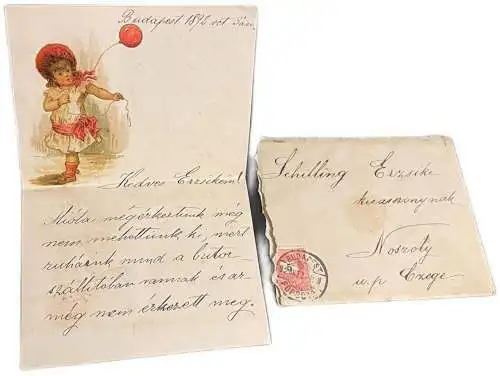 Budapest 1892 oct 5én.
Kedves Erzsikém!
Mióta megérkeztünk még
nem mehettünk ki, mert
ruháink mind a butor
szállitóban vannak és az
még nem érkezett meg.
Schilling Erzsike
kisasszonynak
Noszoly
u.p. Czege
BUDAPEST